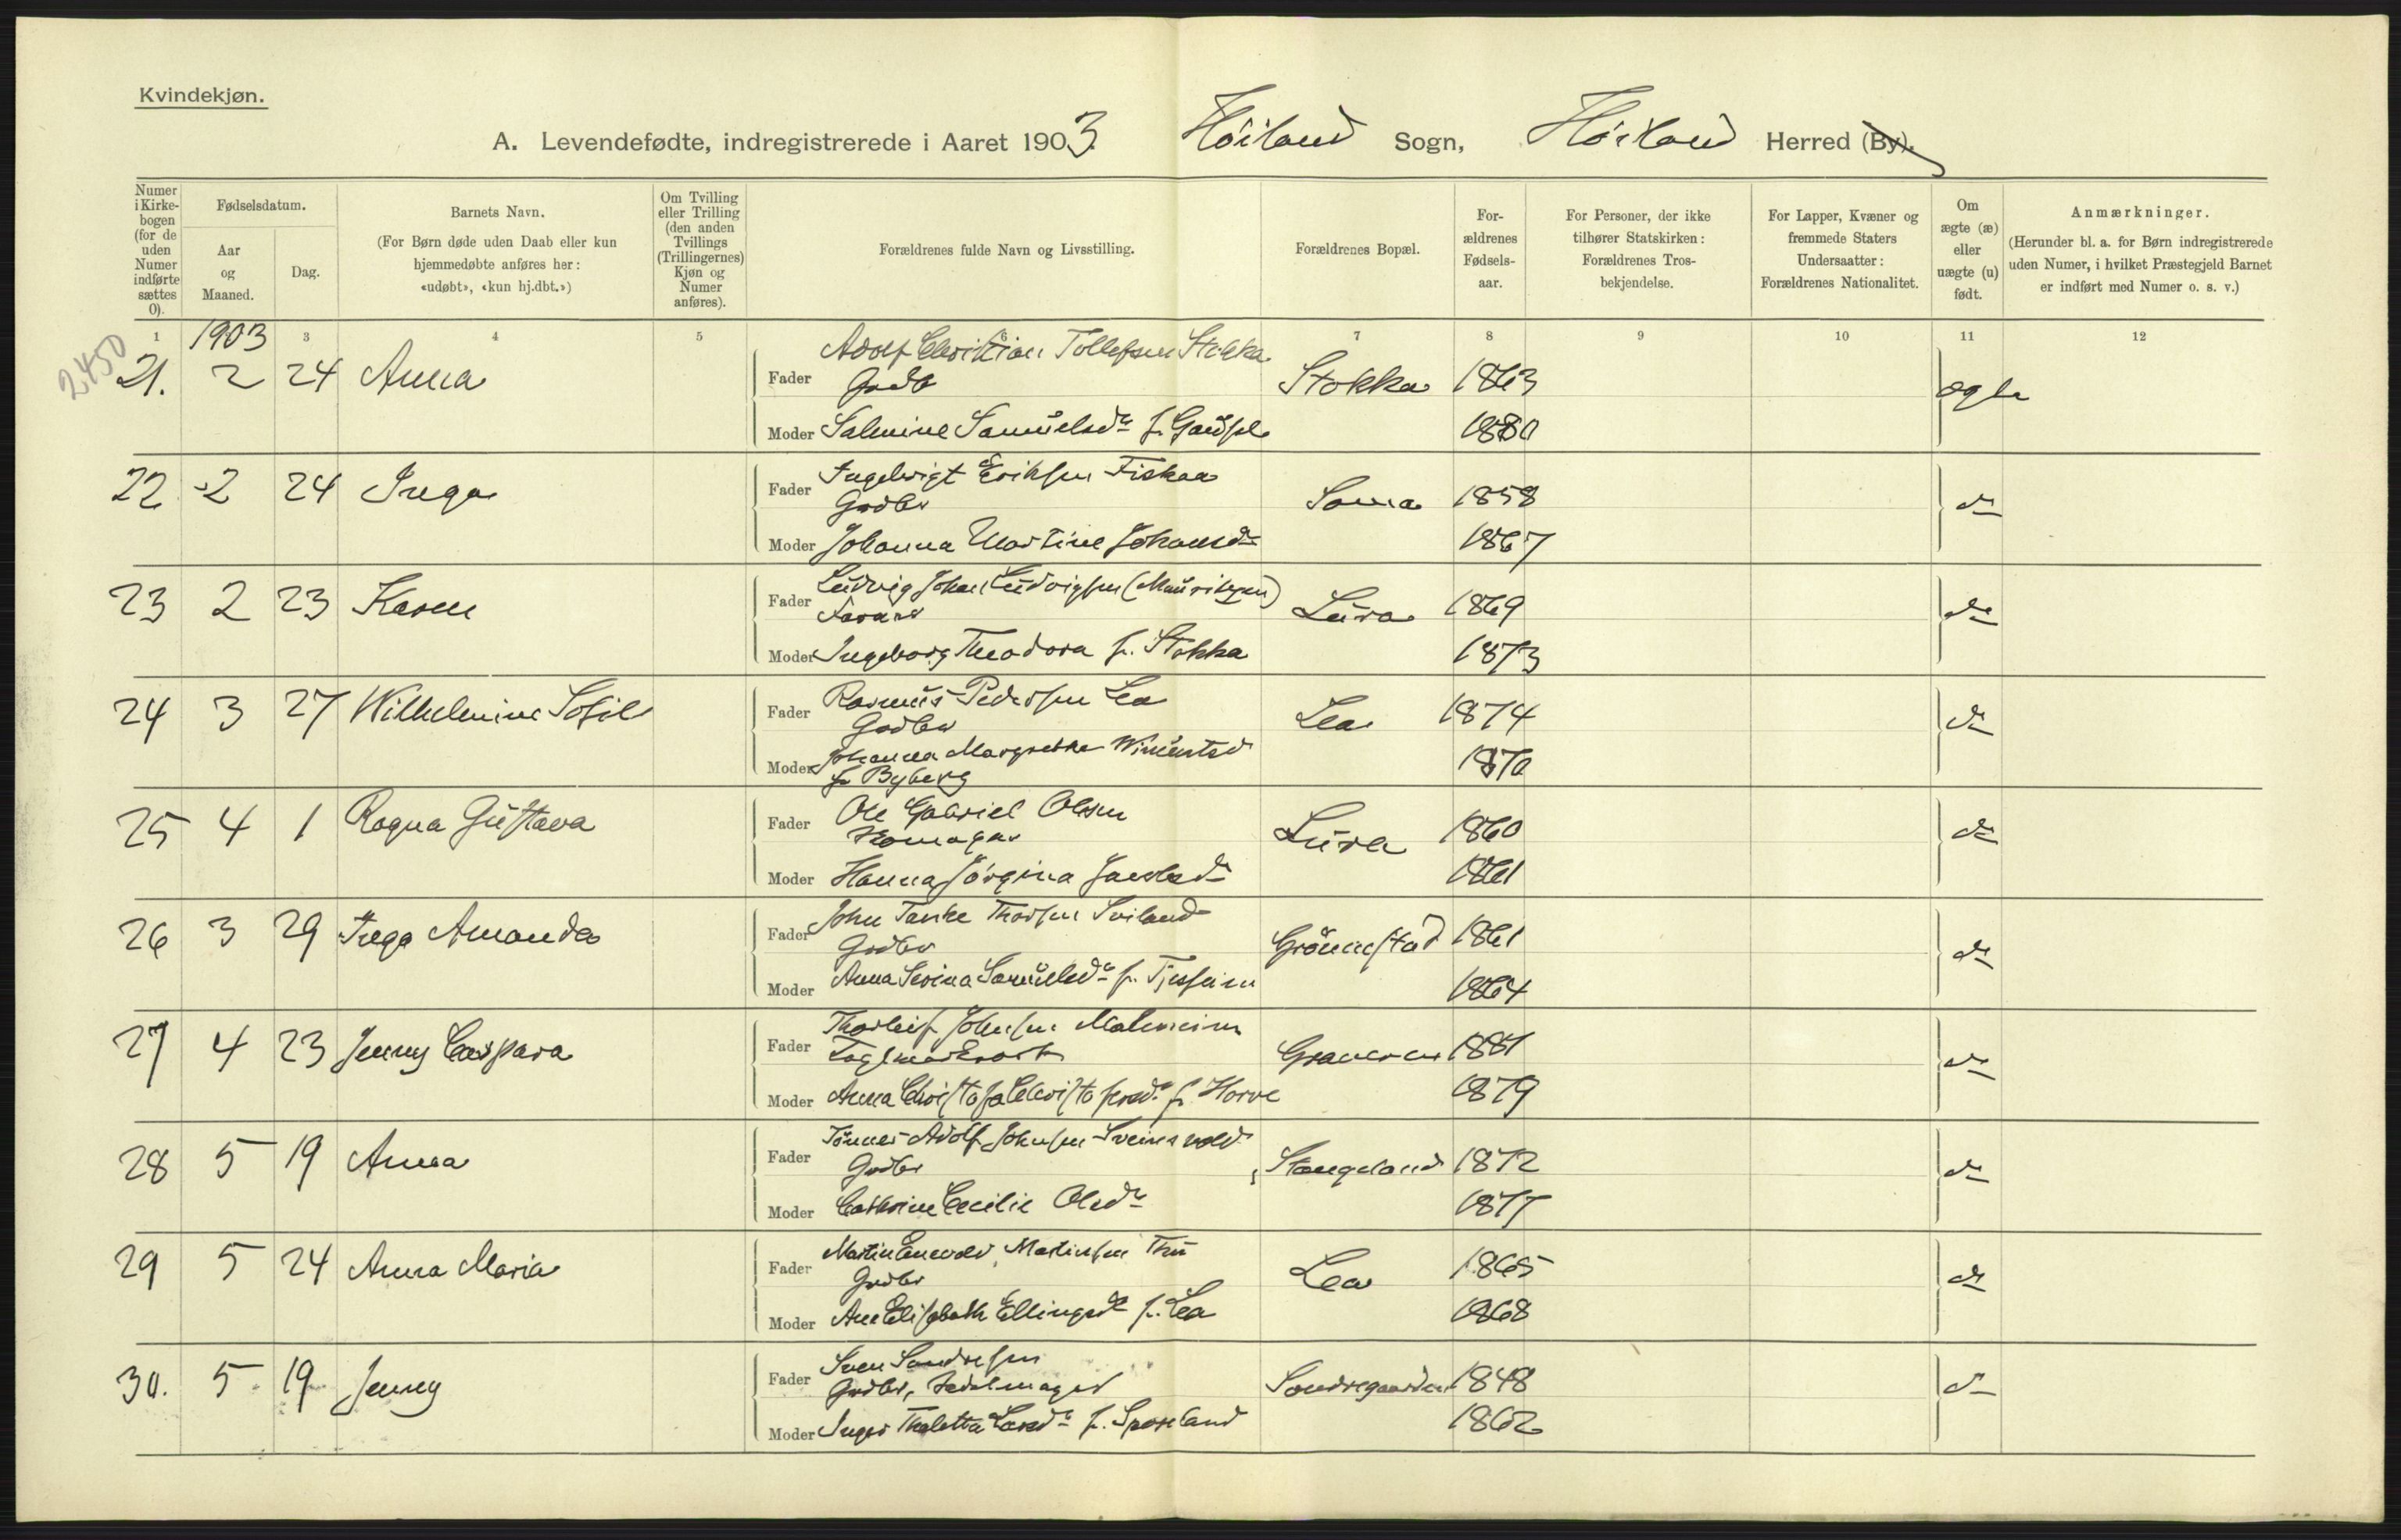 Kvindekjøn.
A. Levendefødte, indregistrerede i Aaret 1903. Höiland Sogn, Höiland Herred (By).
Numer i Kirkebogen (for de uden Numer indførte sættes 0).
Fødselsdatum.
Aar og Maaned.
Dag.
Barnets Navn.
(For Børn døde uden Daab eller kun hjemmedøbte anføres her: «udøbt», «kun hj.dbt.»)
Om Tvilling eller Trilling (den anden Tvillings (Trillingernes) Kjøn og Numer anføres).
Forældrenes fulde Navn og Livsstilling.
Forældrenes Bopæl.
Forældrenes Fødselsaar.
For Personer, der ikke tilhører Statskirken: Forældrenes Trosbekjendelse.
For Lapper, Kvæner og fremmede Staters Undersaatter: Forældrenes Nationalitet.
Om ægte (æ) eller uægte (u) født.
Anmærkninger.
(Herunder bl. a. for Børn indregistrerede uden Numer, i hvilket Præstegjeld Barnet er indført med Numer o. s. v.)
1 3 4 5 6 7 8 9 10 11 12
1903
2450
21. 2 24 Anna
Fader Adolf Christian Tollefsen Stokka
Grdb Stokka 1863 ægte
Moder Salmine Samuelsdr f. Gausel 1880
22 2 24 Inga
Fader Ingebrigt Eriksen Fiskaa
Grdbr Soma 1858 do
Moder Johanna Martine Johansdr 1867
23 2 23 Karen
Fader Ludvig Johan Ludvigsen (Mauritzen)
Lura 1869 do
Moder Ingeborg Theodora f. Stokka 1873
24 3 27 Wilhelmine Sofie
Fader Rasmus Pedersen Lea
Grdbr Lea 1874 do
Moder Johanna Margrethe Winsentsd
f. Byberg 1870
25 4 1 Ragna Gustava
Fader Ole Gabriel Olsen
Skomager Lura 1860 do
Moder Hanna Jörgina 1861
26 3 29 Inga Amanda
Fader John Tanke Thorsen Sviland
Grdbr Grönnestad 1861 do
Moder Anna Serina Samuelsdr f. Tjessheim 1864
27 4 23 Jenny Caspara
Fader Thorleif Johnsen Malmeim
Graneren 1881 do
Moder Anna Christofa Christofersdr f. Horve 1879
28 5 19 Anna
Fader Tönnes Adolf Johnsen Sveinsvold
Grdbr Stangeland 1872 do
Moder Cathrine Cecilie Olsdr 1877
29 5 24 Anna Maria
Fader Martin Enevald Martinsen Thu
Grdbr Lea 1865 do
Moder Ane Elisabeth Ellingsdr f. Lea 1868
30. 5 19 Jenny
Fader Sven Sondresen
Grdbr, Sadelmager Sondregaarden 1848 do
Moder Inger Thaletta Larsdr f. Sporeland 1862